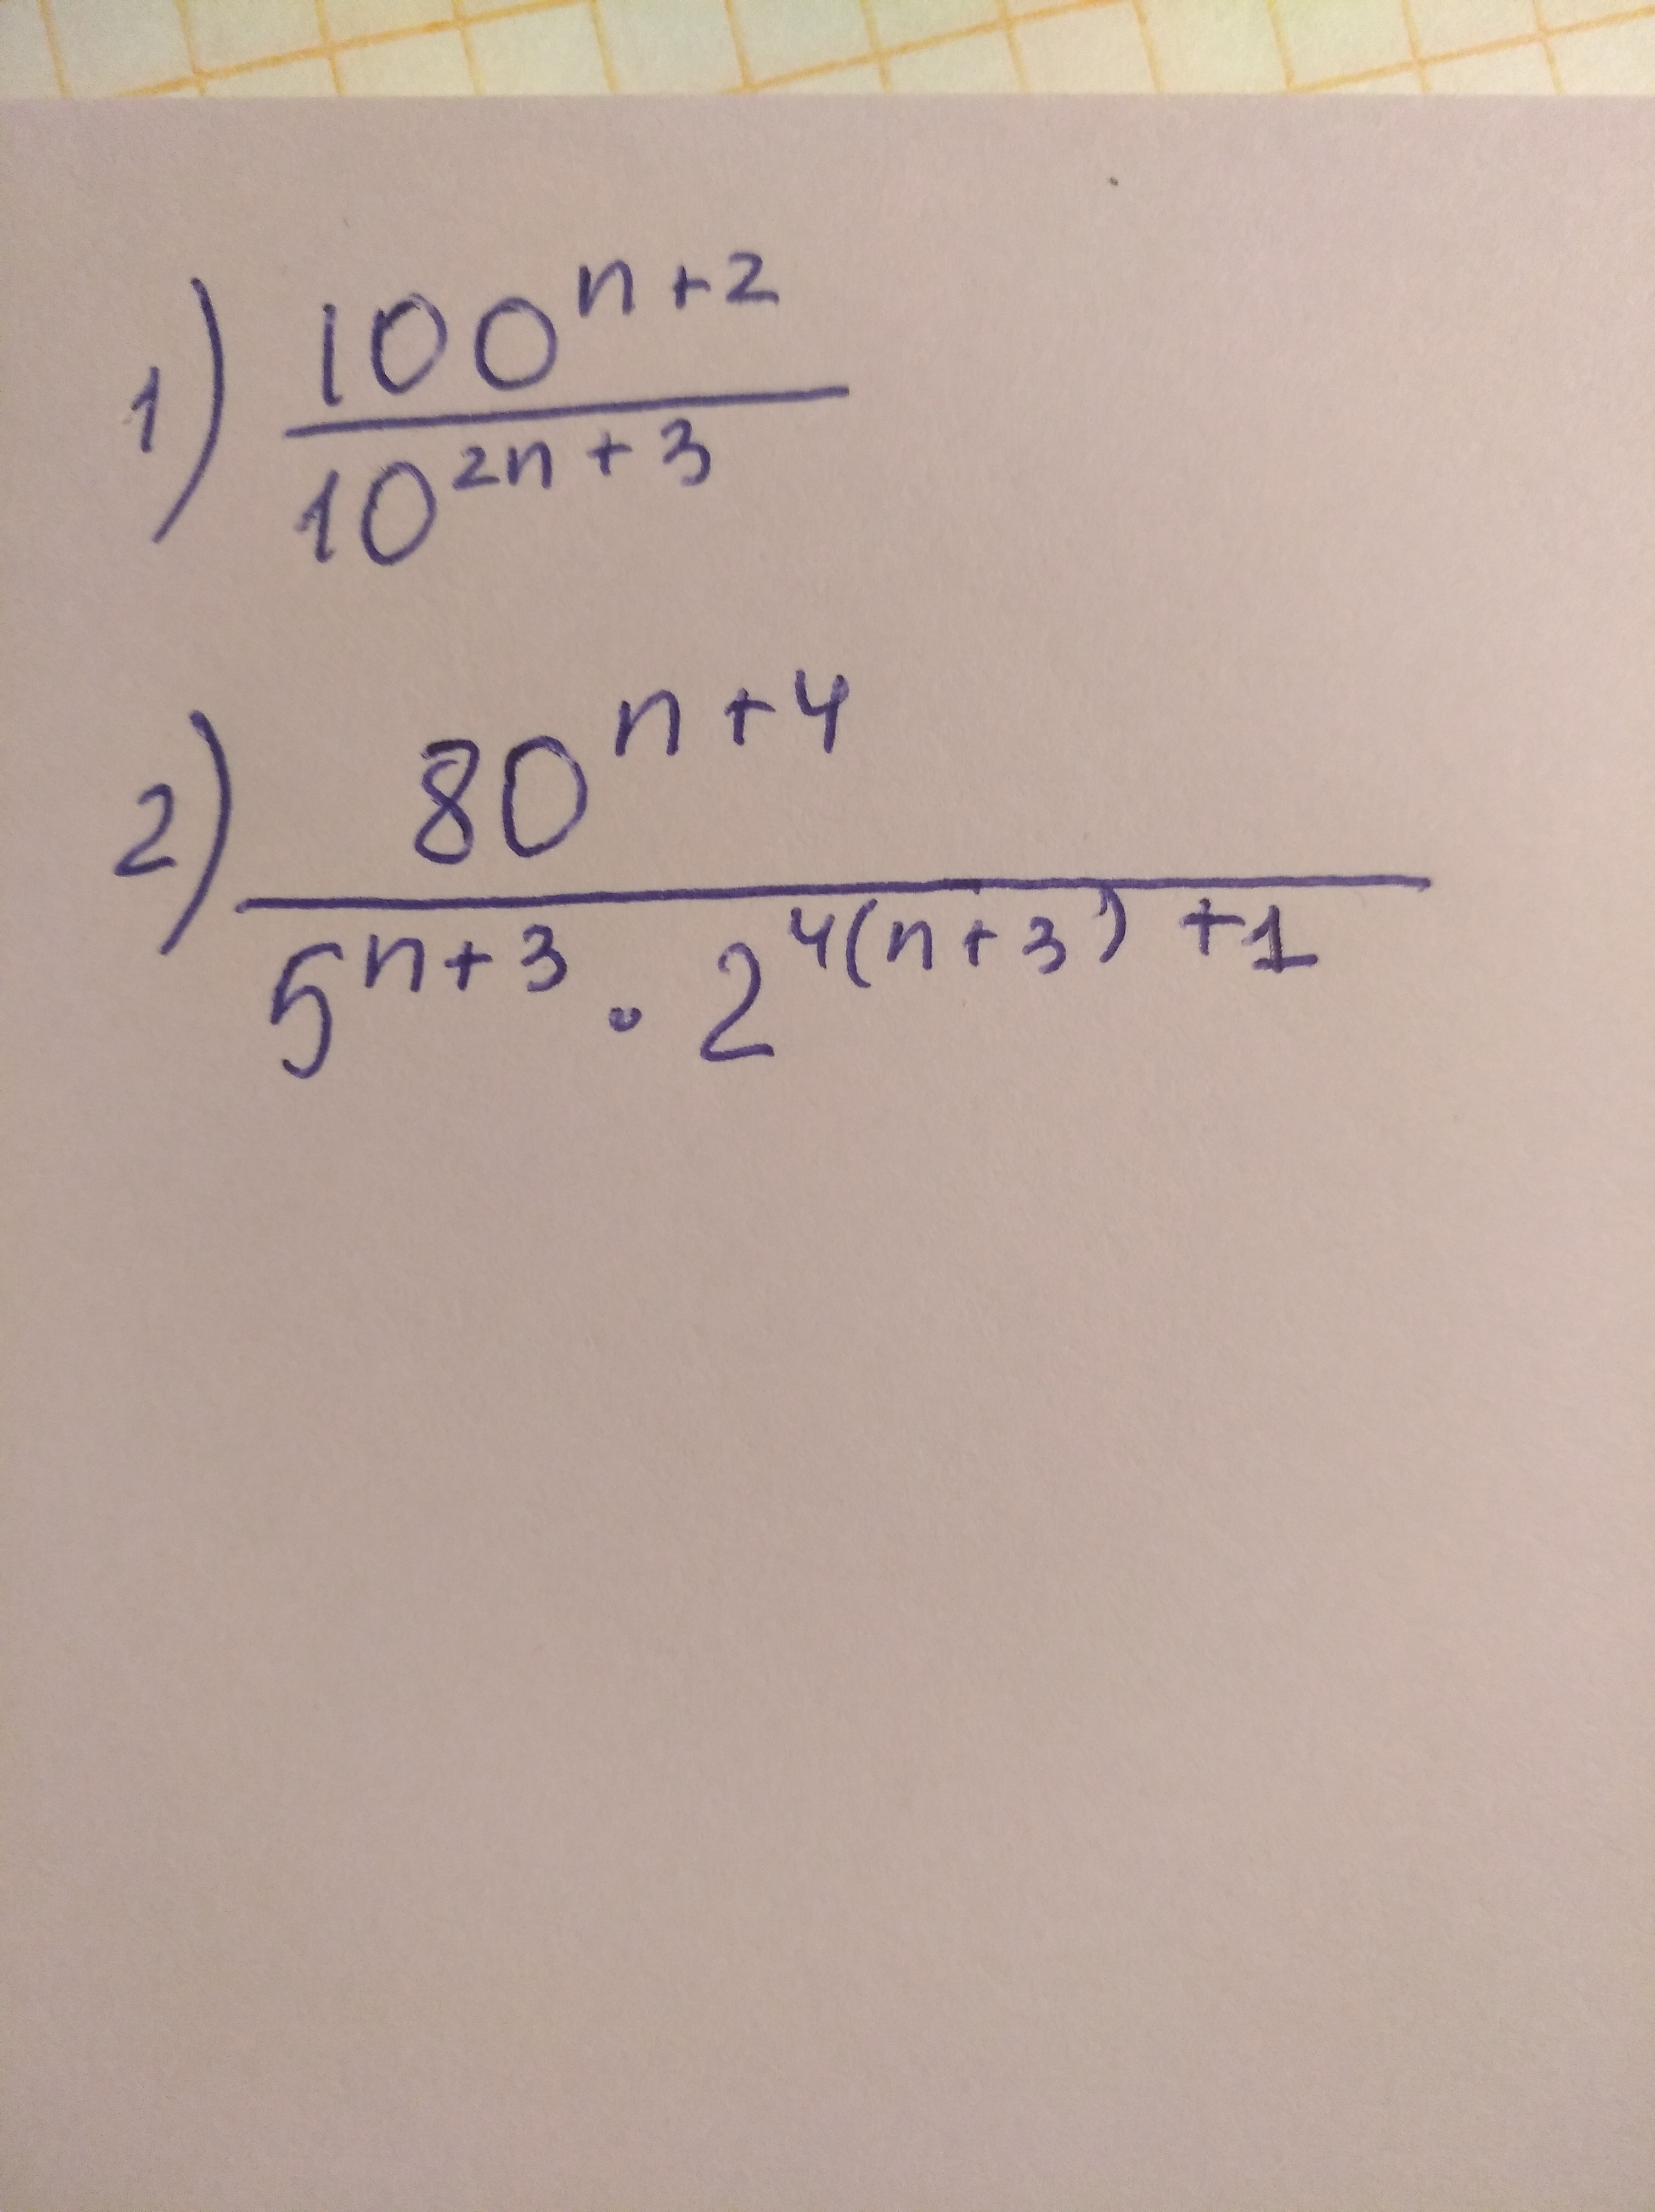 1) 100^{n+2}
10^{2n+3}
2) 80^{n+4}
5^{n+3} · 2^{4(n+3)+1}